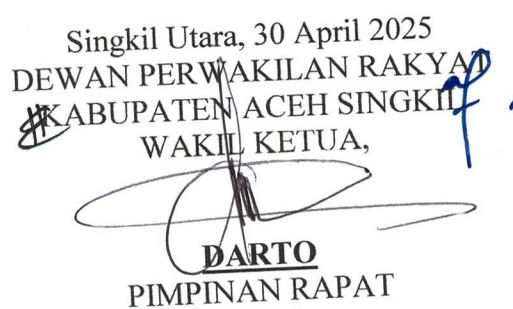 Singkil Utara, 30 April 2025
DEWAN PERWAKILAN RAKYAT
KABUPATEN ACEH SINGKIL
WAKIL KETUA,
DARTO
PIMPINAN RAPAT